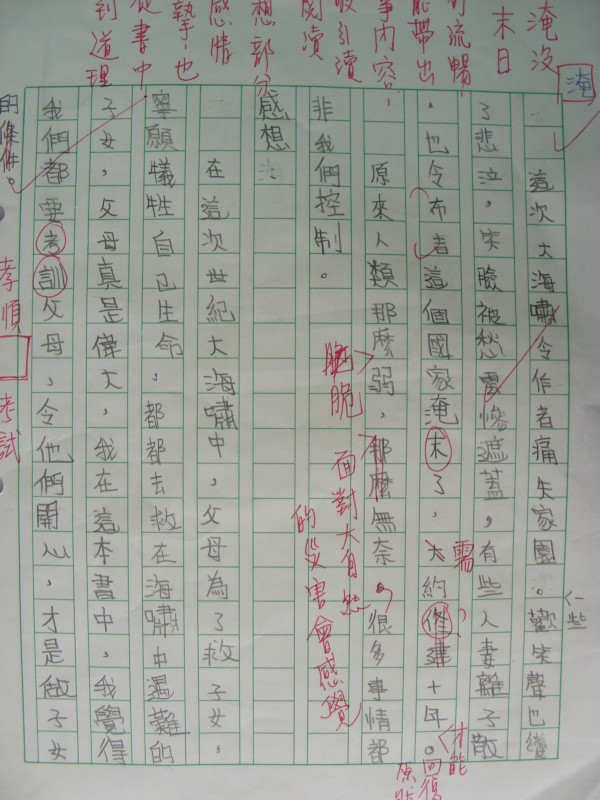 這次大海嘯令作者痛失家園。歡笑聲也變
了悲泣,笑臉被愁雲慘遮蓋,有些人妻離子散
,也令布吉這個國家淹末了,大約修建十年。
原來人類那麼弱,那麼無奈。很多事情都
非我們控制。
感想
在這次世紀大海嘯中,父母為了救子女,
寧願犧牲自己生命,都都去救在海嘯中遇難的
子女,父母真是偉大,我在這本書中,我覺得
我們都要考訓父母,令他們開心,才是做子女
的條件。
淹
淹沒
末日
流暢
能帶出
事內容,
引讀
閱讀
想部分
感情
執,也
從書中
到道理
一些
需
才能
回復
原狀
脆
面對大自然
的災害會感覺
孝順
考試